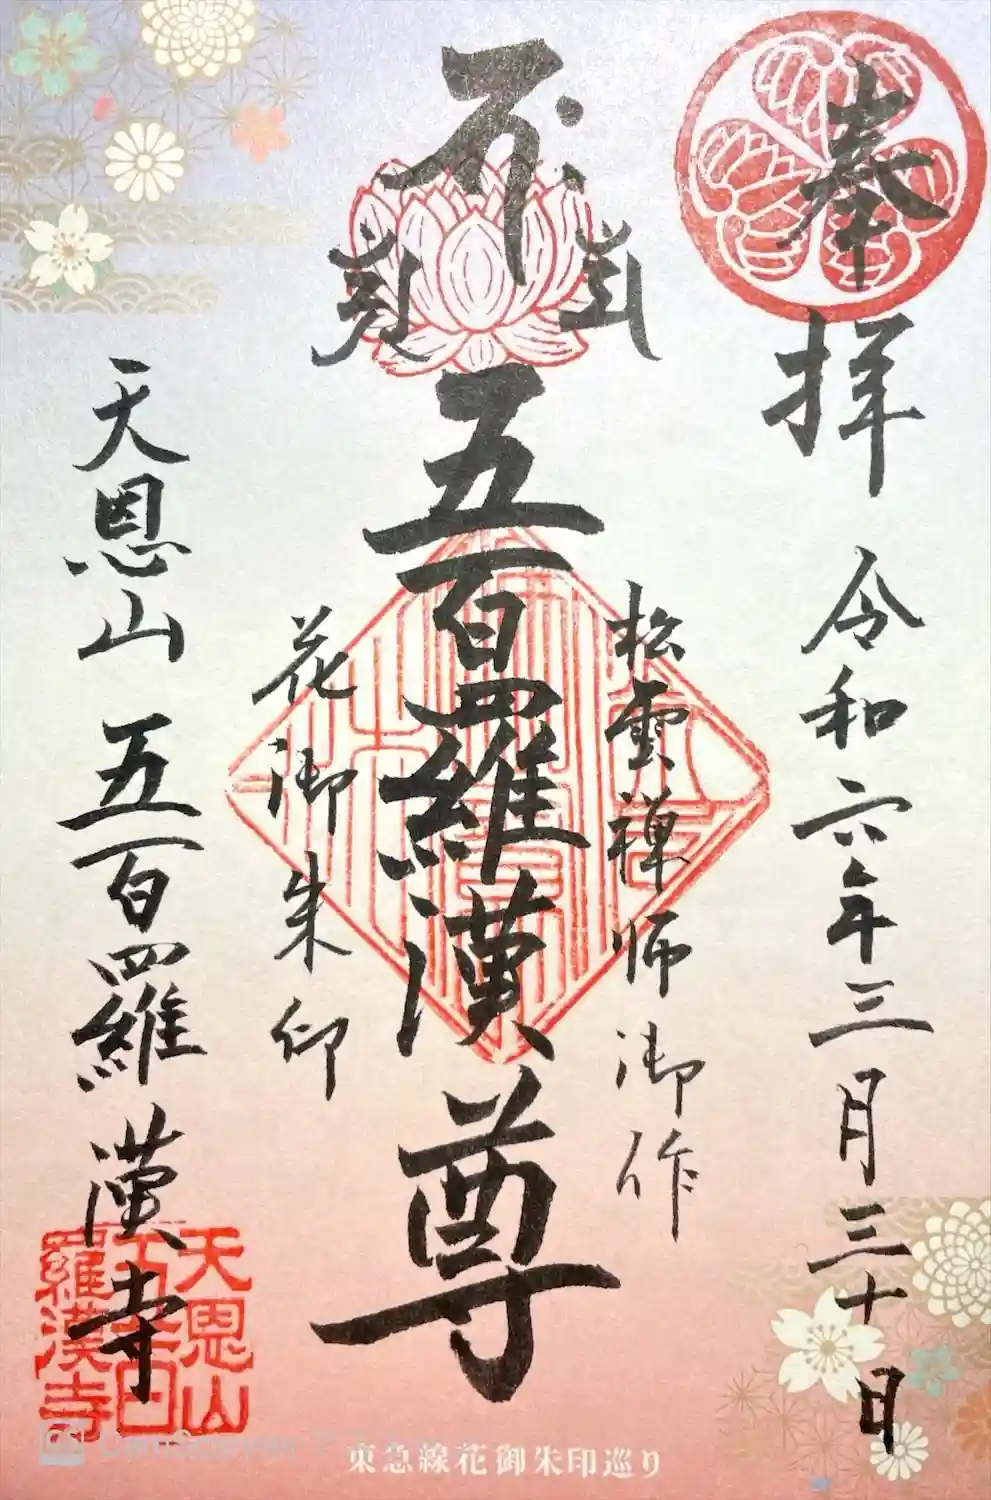 奉拝
令和六年三月三十日
松雲禅師御作
五百羅漢尊
花御朱印
天恩山
五百羅漢寺
天恩山
五百
羅漢寺
東急線花御朱印巡り
CS CamScanner